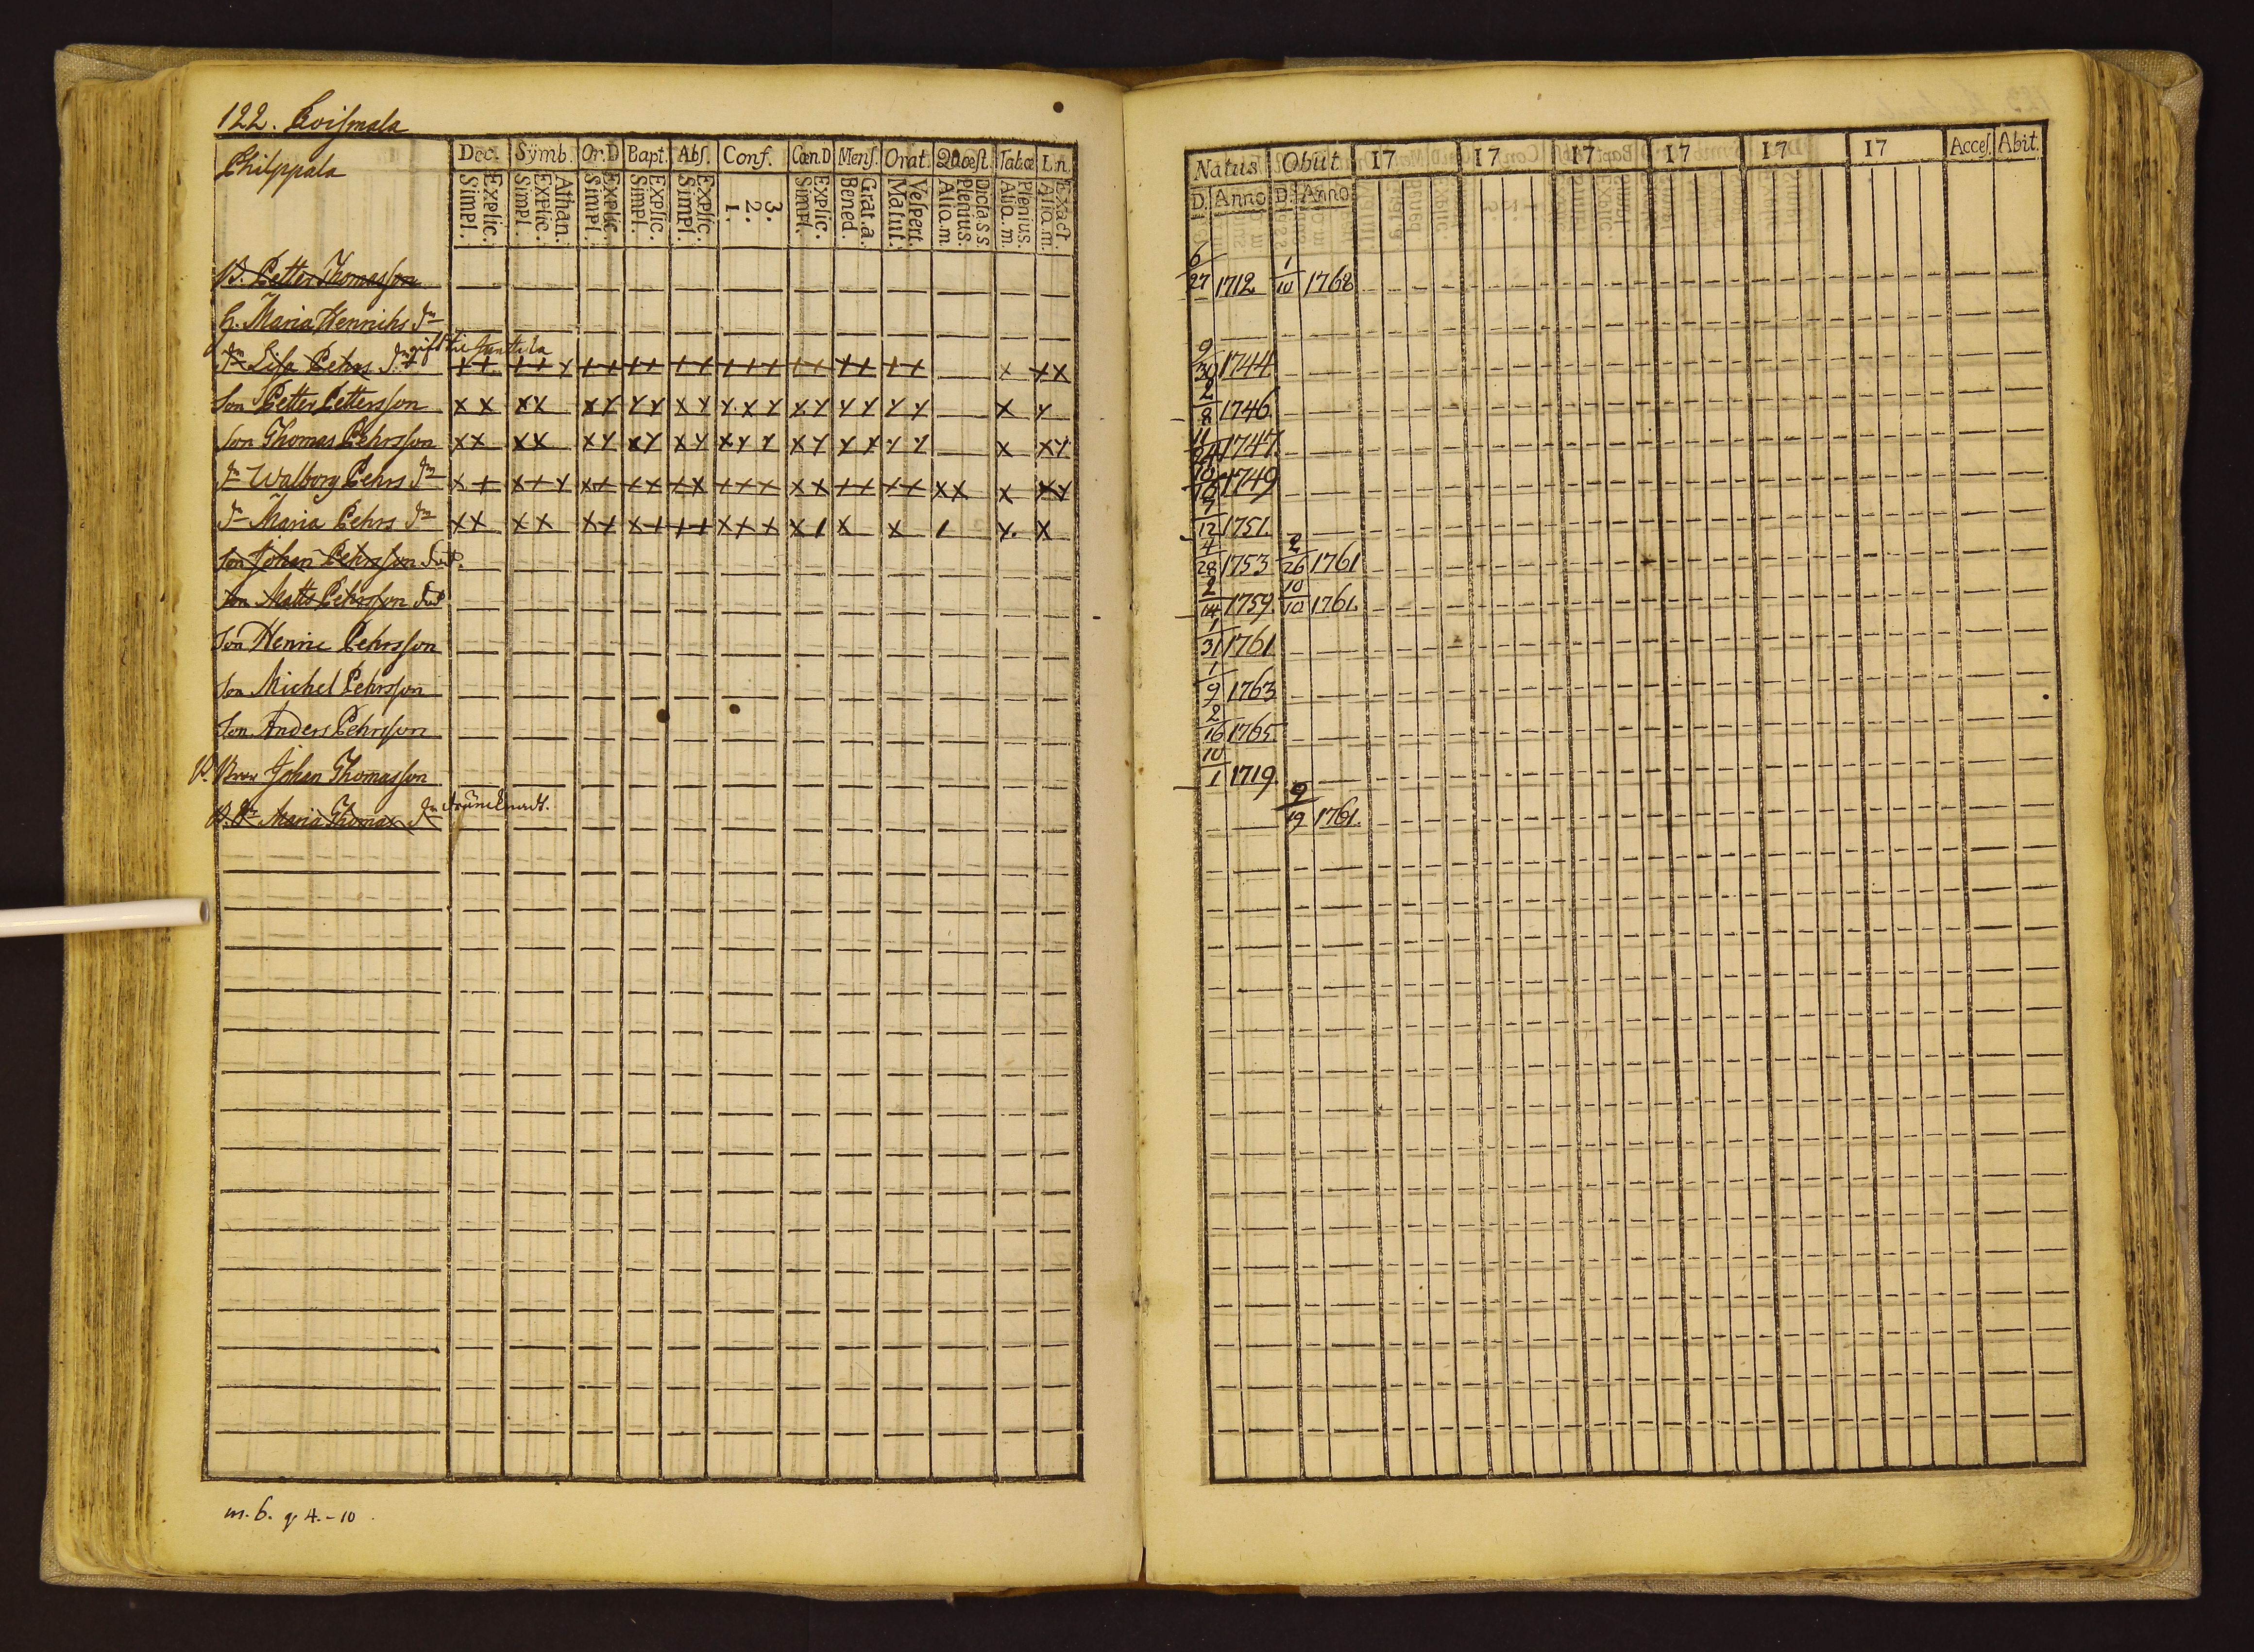 122. Koismala
Philppala
Dec. Symb. Or.D Bapt. Abs. Conf. Cœn.D Mens. Orat. Quæst. Tab.œ L.n.
Explic. Simpl. Athan. Explic. Simpl. Explic. Simpl. Explic. Simpl. Explic. Simpl. 3. 2. 1. Explic. Simpl. Grat.a. Bened. Vespert. Matut. Dicta.s.s. Plenius. Aliq.m. Plenius. Aliq.m. Exact. Aliq.m.
Natus Obiit 17 17 17 17 17 17 Acces. Abit.
D. Anno D. Anno
B. Petter Thomasson 6/27 1712 1/10 1768
H. Maria Henrichs dr
dr Lisa Pehrs dr gift til 9/30 1744
Son Petter Pettersson 2/8 1746
Son Thomas Pehrsson 11/24 1747.
dr Walborg Pehrs dr 10/10 1749
dr Maria Pehrs dr 7/12 1751.
Son Johan Pehrsson död. 4/28 1753 2/26 1761
Son Matts Pehrsson död 2/14 1759 10/10 1761.
Son Henric Pehrsson 1/31 1761
Son Michel Pehrsson 1/9 1763
Son Anders Pehrsson 2/16 1765
B. Bror Johan Thomasson 10/1 1719.
B. dr Maria Thomas dr 9/19 1761.
m. 6. q 4. - 10